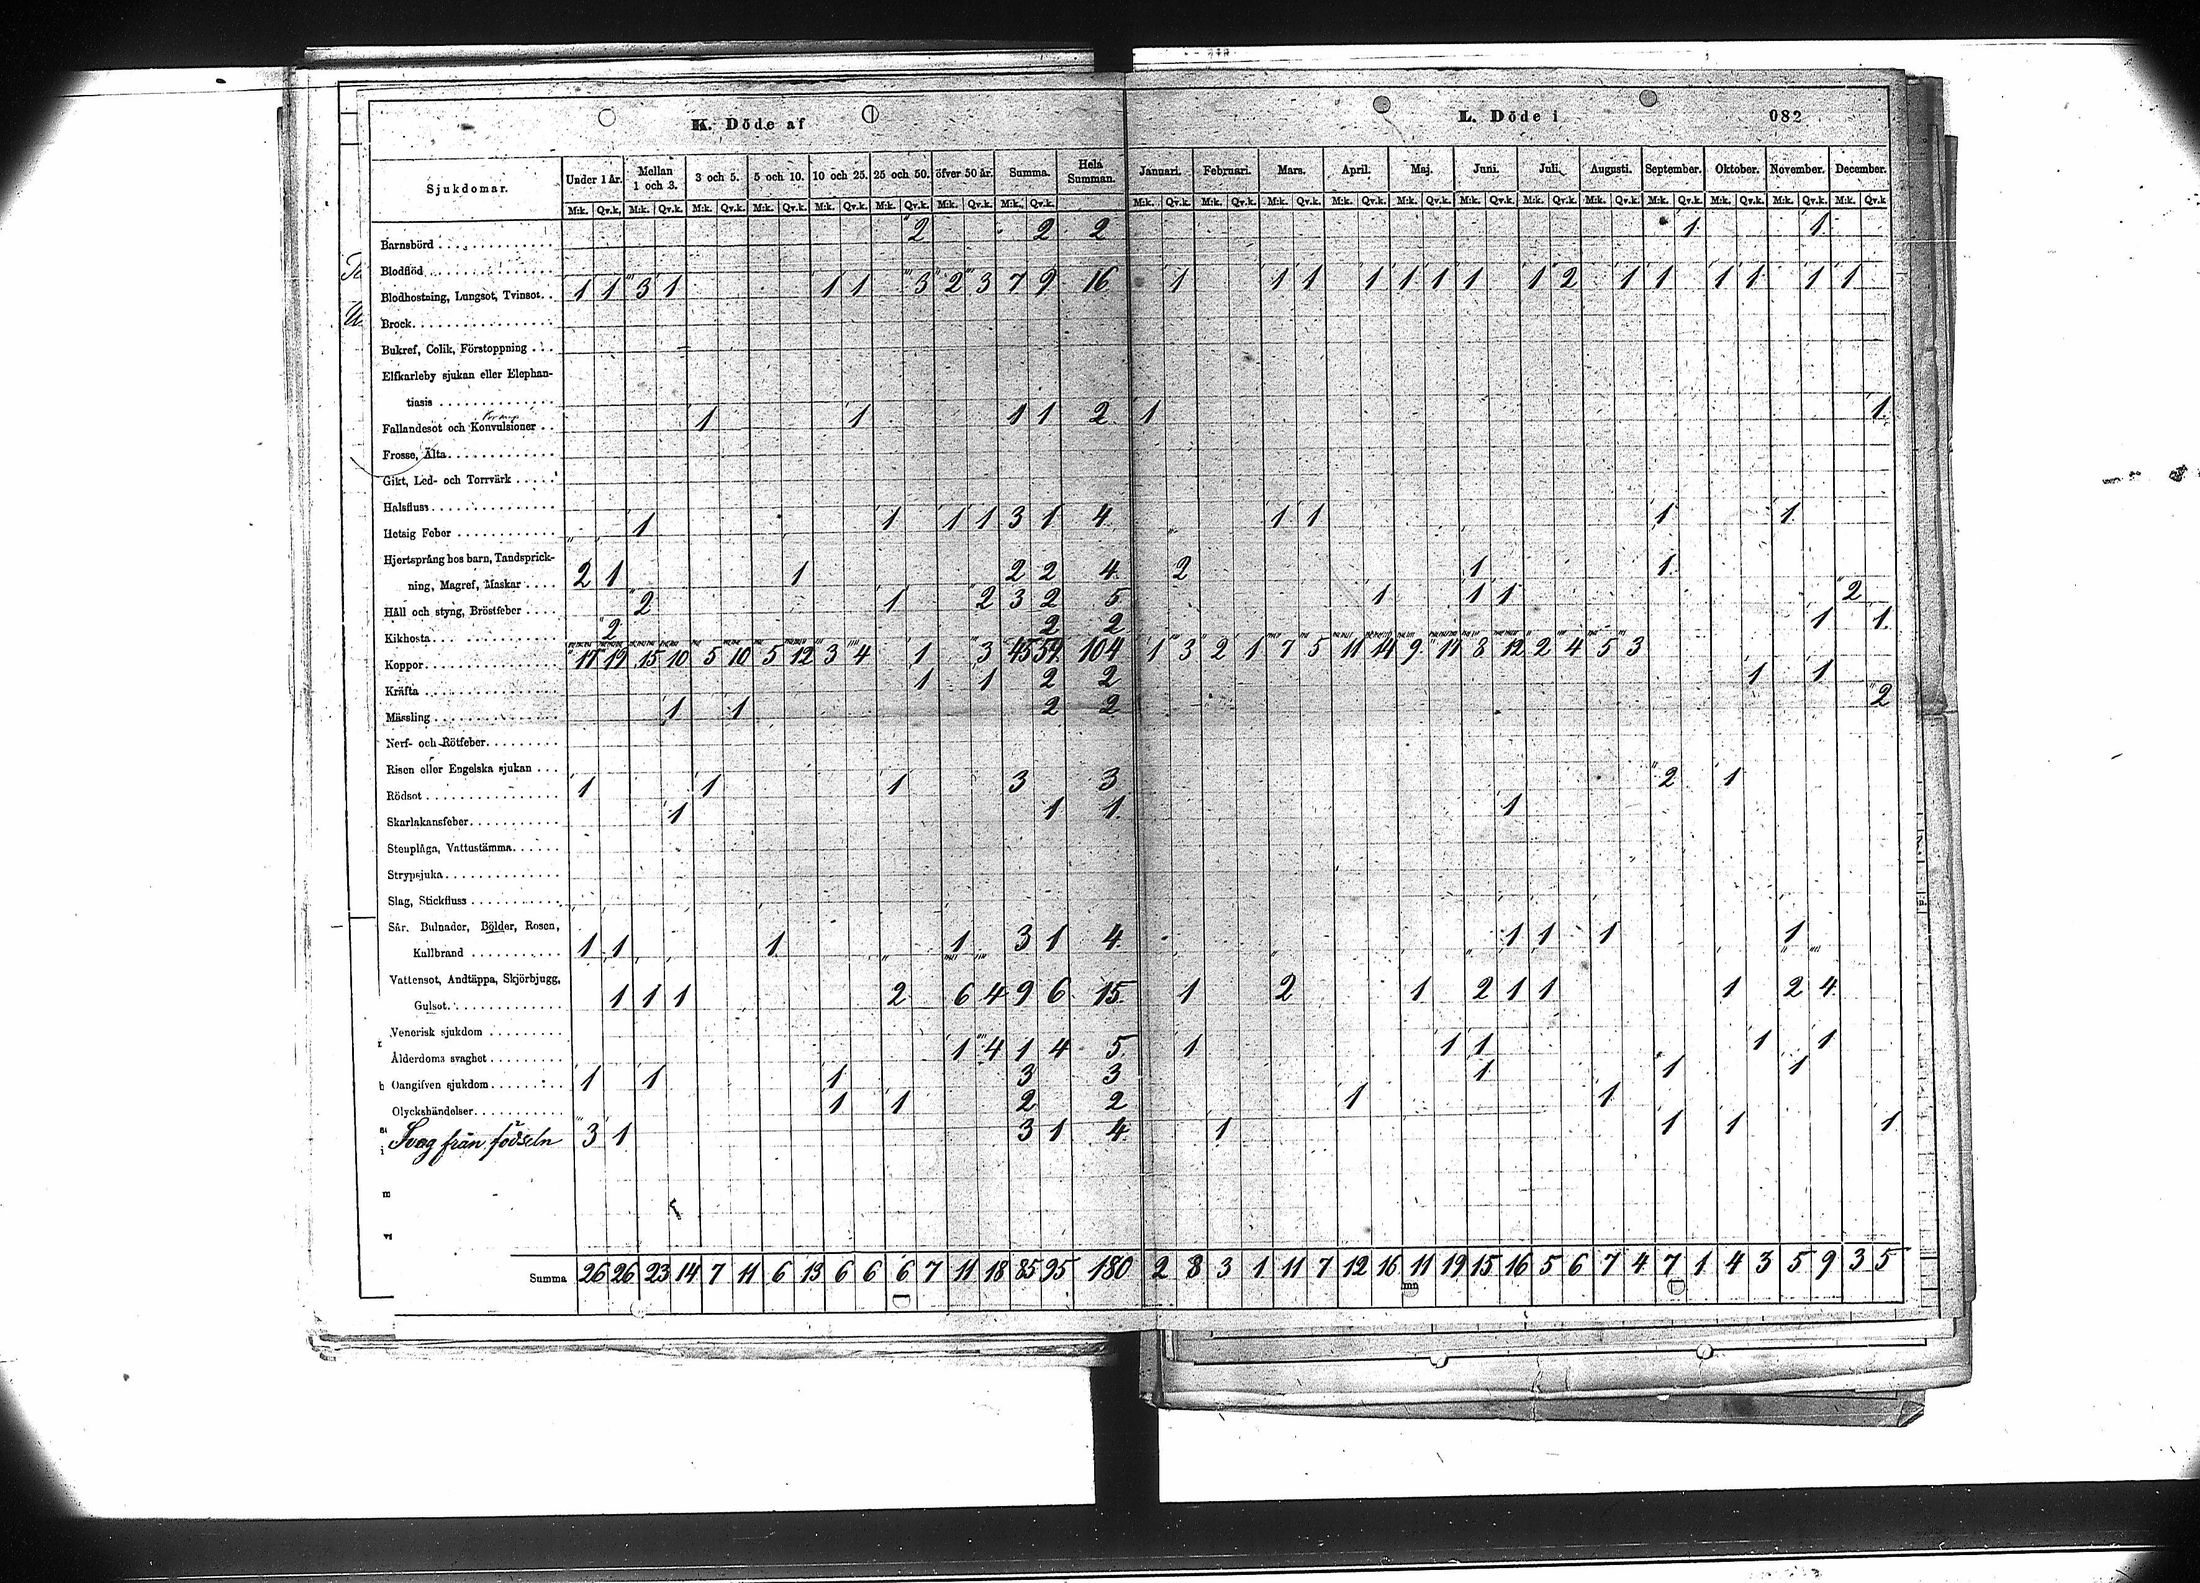 K. Döde af
L. Döde i
082
Sjukdomar. Under 1 år. Mellan 1 och 3. 3 och 5. 5 och 10. 10 och 25. 25 och 50. öfver 50 år. Summa. Hela Summan. Januari. Februari. Mars. April. Maj. Juni. Juli. Augusti. September. Oktober. November. December.
M:k. Qv.k. M:k. Qv.k. M:k. Qv.k. M:k. Qv.k. M:k. Qv.k. M:k. Qv.k. M:k. Qv.k. M:k. Qv.k. M:k. Qv.k. M:k. Qv.k. M:k. Qv.k. M:k. Qv.k. M:k. Qv.k. M:k. Qv.k. M:k. Qv.k. M:k. Qv.k. M:k. Qv.k. M:k. Qv.k. M:k. Qv.k. M:k. Qv.k
Barnsbörd 2 2 2 1 1
Blodflöd
Blodhostning, Lungsot, Tvinsot. 1 1 3 1 1 1 3 2 3 7 9 16 1 1 1 1 1 1 1 1 1 2 1 1 1 1 1 1
Brock
Bukref, Colik, Förstoppning
Elfkarleby sjukan eller Elephan-
tiasis
Fallandesot och Konvulsioner 1 1 1 1 2 1 1
Frosse, Älta
Gikt, Led- och Torrvärk
Halsfluss
Hetsig Feber 1 1 1 1 3 1 4 1 1 1 1
Hjertsprång hos barn, Tandsprick-
ning, Magref, Maskar 2 1 1 2 2 4 2 1 1
Håll och styng, Bröstfeber 2 1 2 3 2 5 1 1 1 2
Kikhosta 2 2 2 1 1
Koppor 17 19 15 10 5 10 5 12 3 4 1 3 45 59 104 1 3 2 1 7 5 11 14 9 17 8 12 2 4 5 3
Kräfta 1 1 2 2 1 1
Mässling 1 1 2 2 2
Nerf- och Rötfeber
Risen eller Engelska sjukan
Rödsot 1 1 1 3 3 2 1
Skarlakansfeber 1 1 1 1
Stenplåga, Vattustämma
Strypsjuka
Slag, Stickfluss
Sår. Bulnader, Bölder, Rosen,
Kallbrand 1 1 1 1 3 1 4 1 1 1 1
Vattensot, Andtäppa, Skjörbjugg,
Gulsot 1 1 1 2 6 4 9 6 15 1 2 1 2 1 1 1 2 4
Venerisk sjukdom
Ålderdoms svaghet 1 4 1 4 5 1 1 1 1 1
Oangifven sjukdom 1 1 1 3 3 1 1 1
Olyckshändelser 1 1 2 2 1 1
Svag från födseln 3 1 3 1 4 1 1 1 1
Summa 26 26 23 14 7 11 6 13 6 6 6 7 11 18 85 95 180 2 8 3 1 11 7 12 16 11 19 15 16 5 6 7 4 7 1 4 3 5 9 3 5